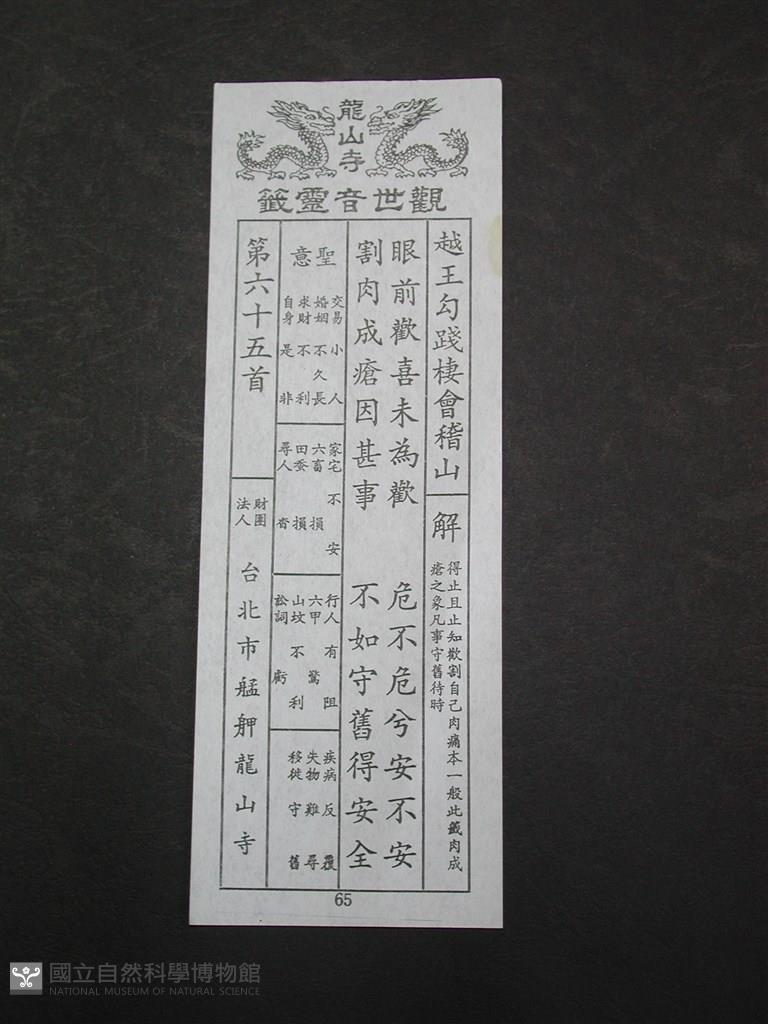 龍山寺
觀世音靈籤
越王勾踐棲會稽山
解
得止且止知歡割自己肉痛本一般此籤肉成
瘡之象凡事守舊待時
眼前歡喜未為歡 危不危兮安不安
割肉成瘡因甚事 不如守舊得安全
聖意
交易小人
婚姻不久長
求財不利
自身是非
家宅不安
六畜損
田蚕損
尋人杳
行人有阻
六甲驚
山坟不利
訟詞虧
疾病反覆
失物難尋
移徙守舊
第六十五首
財團
法人
台北市艋舺龍山寺
65
國立自然科學博物館
NATIONAL MUSEUM OF NATURAL SCIENCE